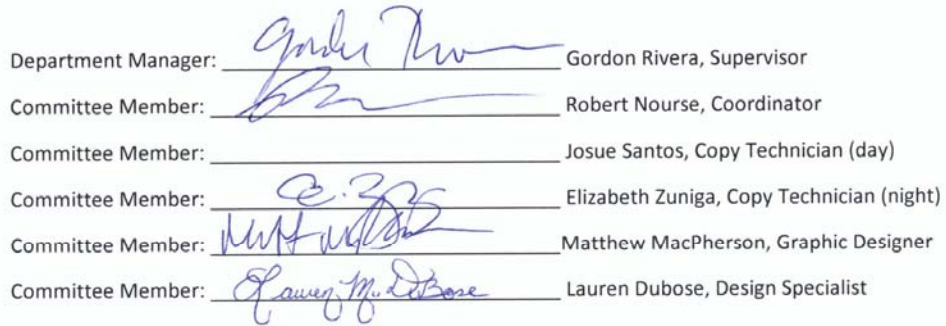 Department Manager: Gordon Rivera, Supervisor
Committee Member: Robert Nourse, Coordinator
Committee Member: Josue Santos, Copy Technician (day)
Committee Member: Elizabeth Zuniga, Copy Technician (night)
Committee Member: Matthew MacPherson, Graphic Designer
Committee Member: Lauren M. DeBose Lauren Dubose, Design Specialist